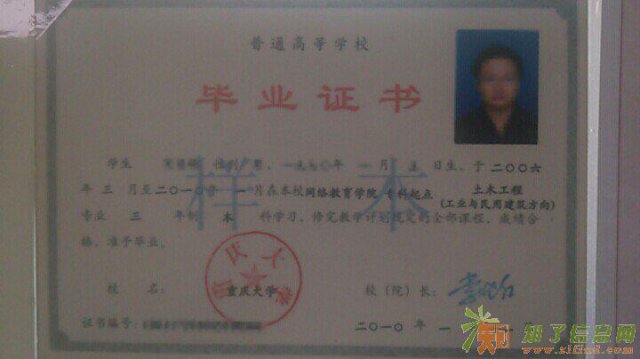 普通高等学校
毕业证书
学生 性别 男, 一九七〇年 一 月 日生, 于二〇〇六
年 三 月至二〇一〇年 一 月在本校 网络教育学院 专科起点 土木工程
(工业与民用建筑方向)
专业 三 年制 本 科学习, 修完教学计划规定的全部课程, 成绩合
格, 准予毕业。
样本
校 名: 重庆大学
校(院)长:
证书编号:
二〇一〇 年 一
知了信息网